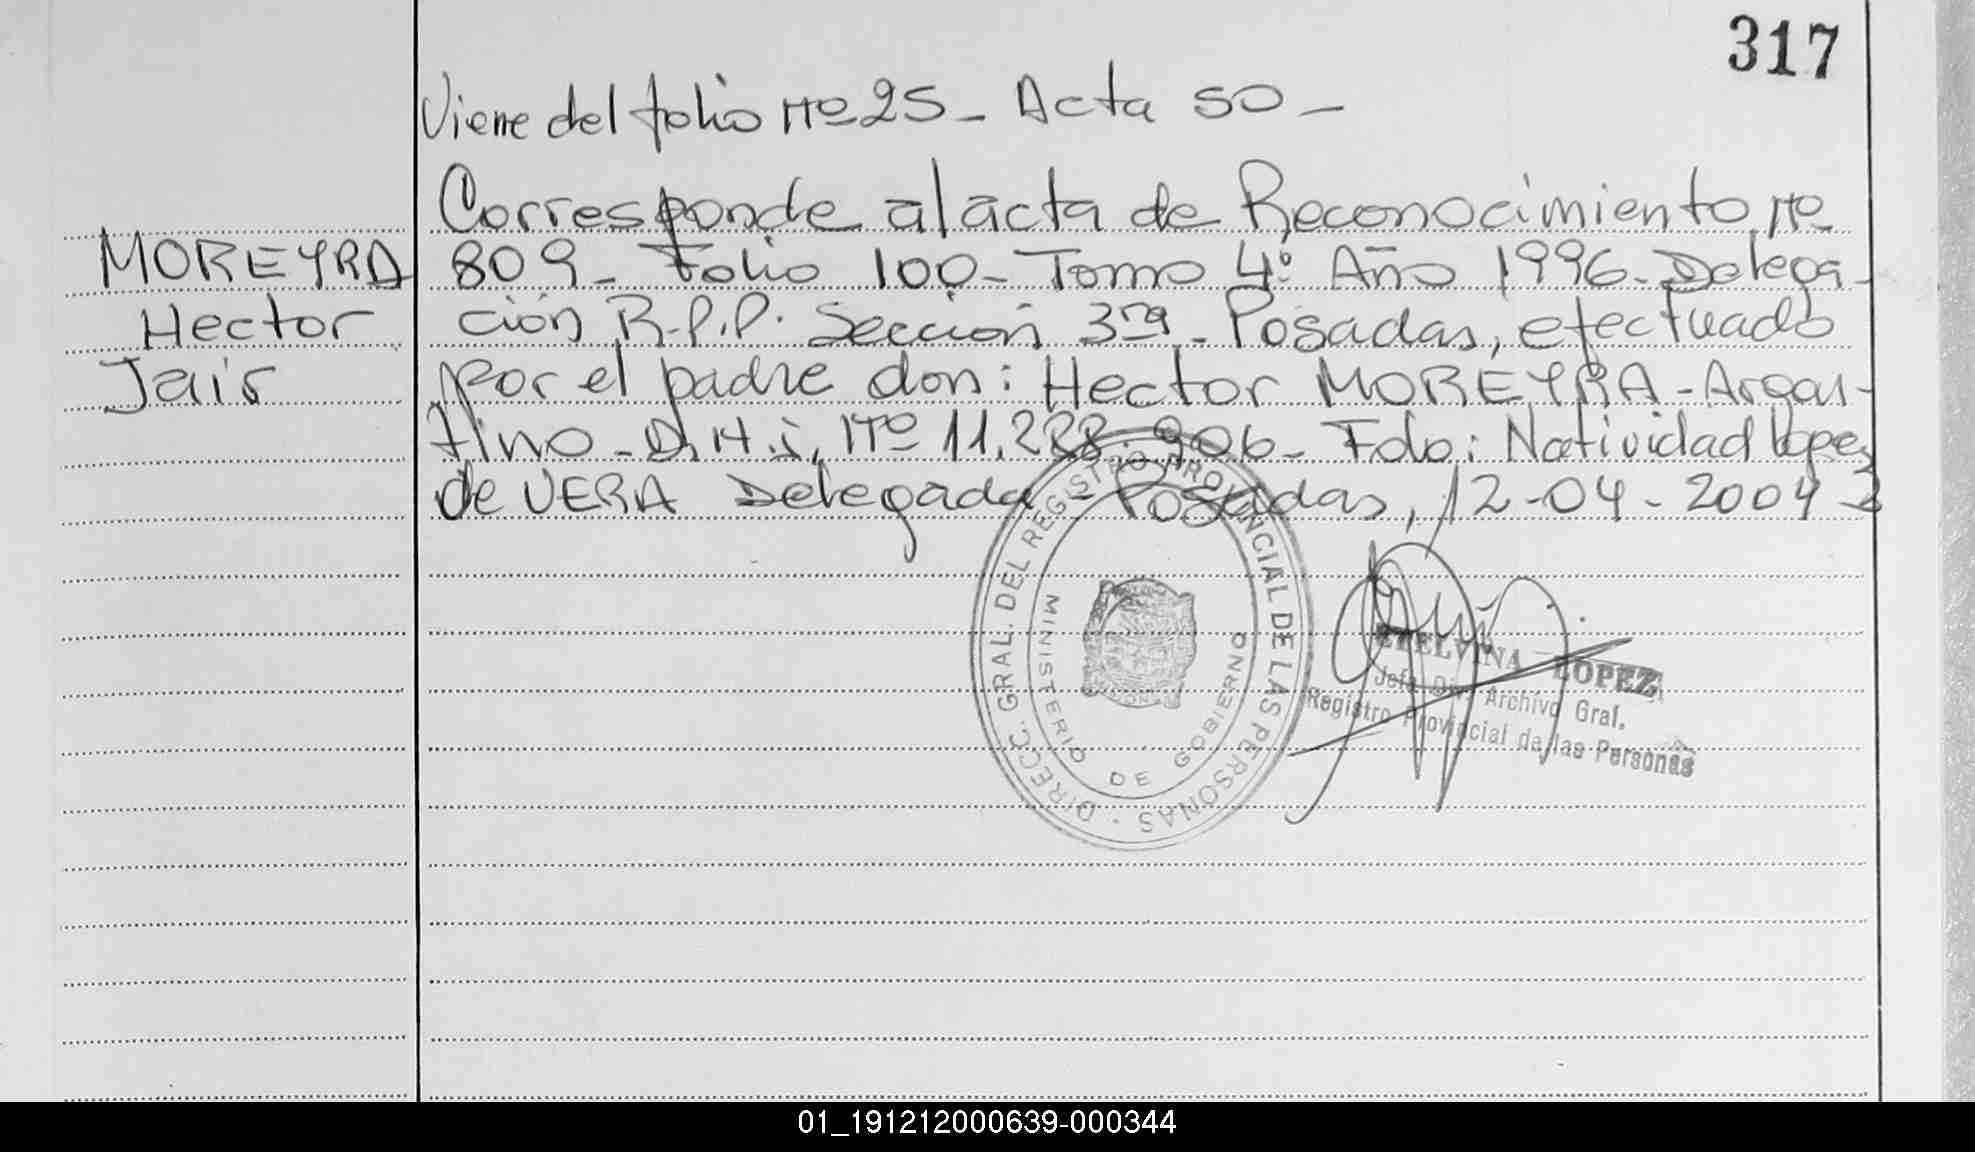 317
Viene del folio Nº 25 - Acta 50 -
Corresponde al acta de Reconocimiento Nº
MOREYRA
Hector
Jair
809 - Folio 100 - Tomo 4º Año 1996 - Delega-
ción R.P.P. Sección 3ra - Posadas, efectuado
por el padre don: Hector MOREYRA - Argen-
tino - D.N.i. Nº 11.228.906 - Fdo: Natividad lopez
de VERA Delegada - Posadas, 12-04-2004
DIRECC. GRAL. DEL REGISTRO PROVINCIAL DE LAS PERSONAS
MINISTERIO DE GOBIERNO
ETELVINA LOPEZ
Jefa Div. Archivo Gral.
Registro Provincial de las Personas
01_191212000639-000344